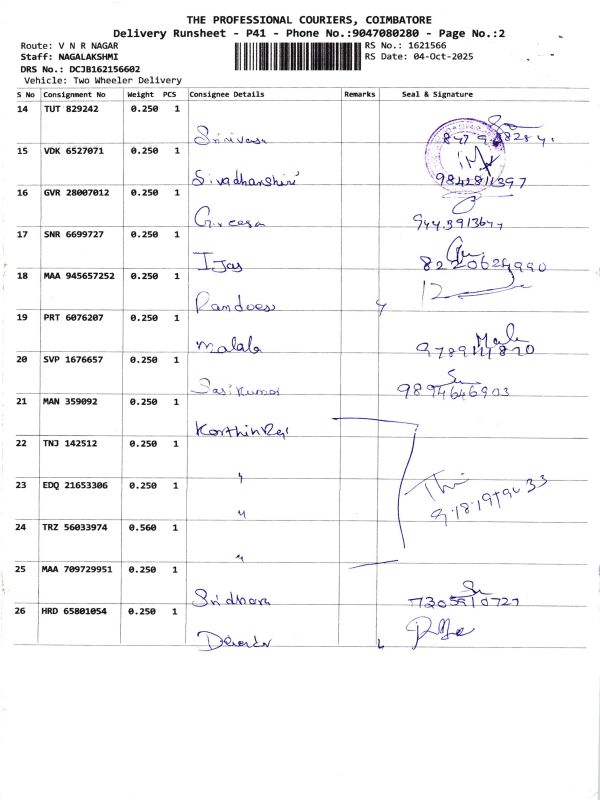 THE PROFESSIONAL COURIERS, COIMBATORE
Delivery Runsheet - P41 - Phone No.:9047080280 - Page No.:2
Route: V N R NAGAR RS No.: 1621566
Staff: NAGALAKSHMI RS Date: 04-Oct-2025
DRS No.: DCJB162156602
Vehicle: Two Wheeler Delivery
S No Consignment No Weight PCS Consignee Details Remarks Seal & Signature
14 TUT 829242 0.250 1
Srinivasa
15 VDK 6527071 0.250 1
Sivadharshini 9842811397
16 GVR 28007012 0.250 1
Gireesa
17 SNR 6699727 0.250 1
Ijas 8220624990
18 MAA 945657252 0.250 1
19 PRT 6076207 0.250 1
Malala
20 SVP 1676657 0.250 1
Sasikumar 9894646903
21 MAN 359092 0.250 1
22 TNJ 142512 0.250 1
"
23 EDQ 21653306 0.250 1
"
24 TRZ 56033974 0.560 1
"
25 MAA 709729951 0.250 1
Sridharan 7305910727
26 HRD 65801054 0.250 1